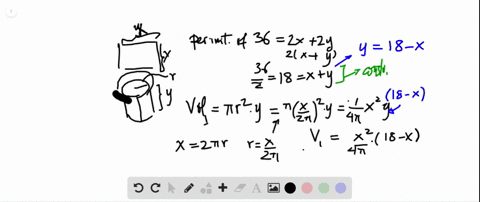 y
x
r
y
perimt. of 36 = 2x + 2y
2(x + y)
36/2 = 18 = x + y
y = 18 - x
Vol = πr² · y = π(x/2π)² y = 1/4π x² y
(18 - x)
x = 2πr
r = x/2π
V₁ = x²/4π · (18 - x)